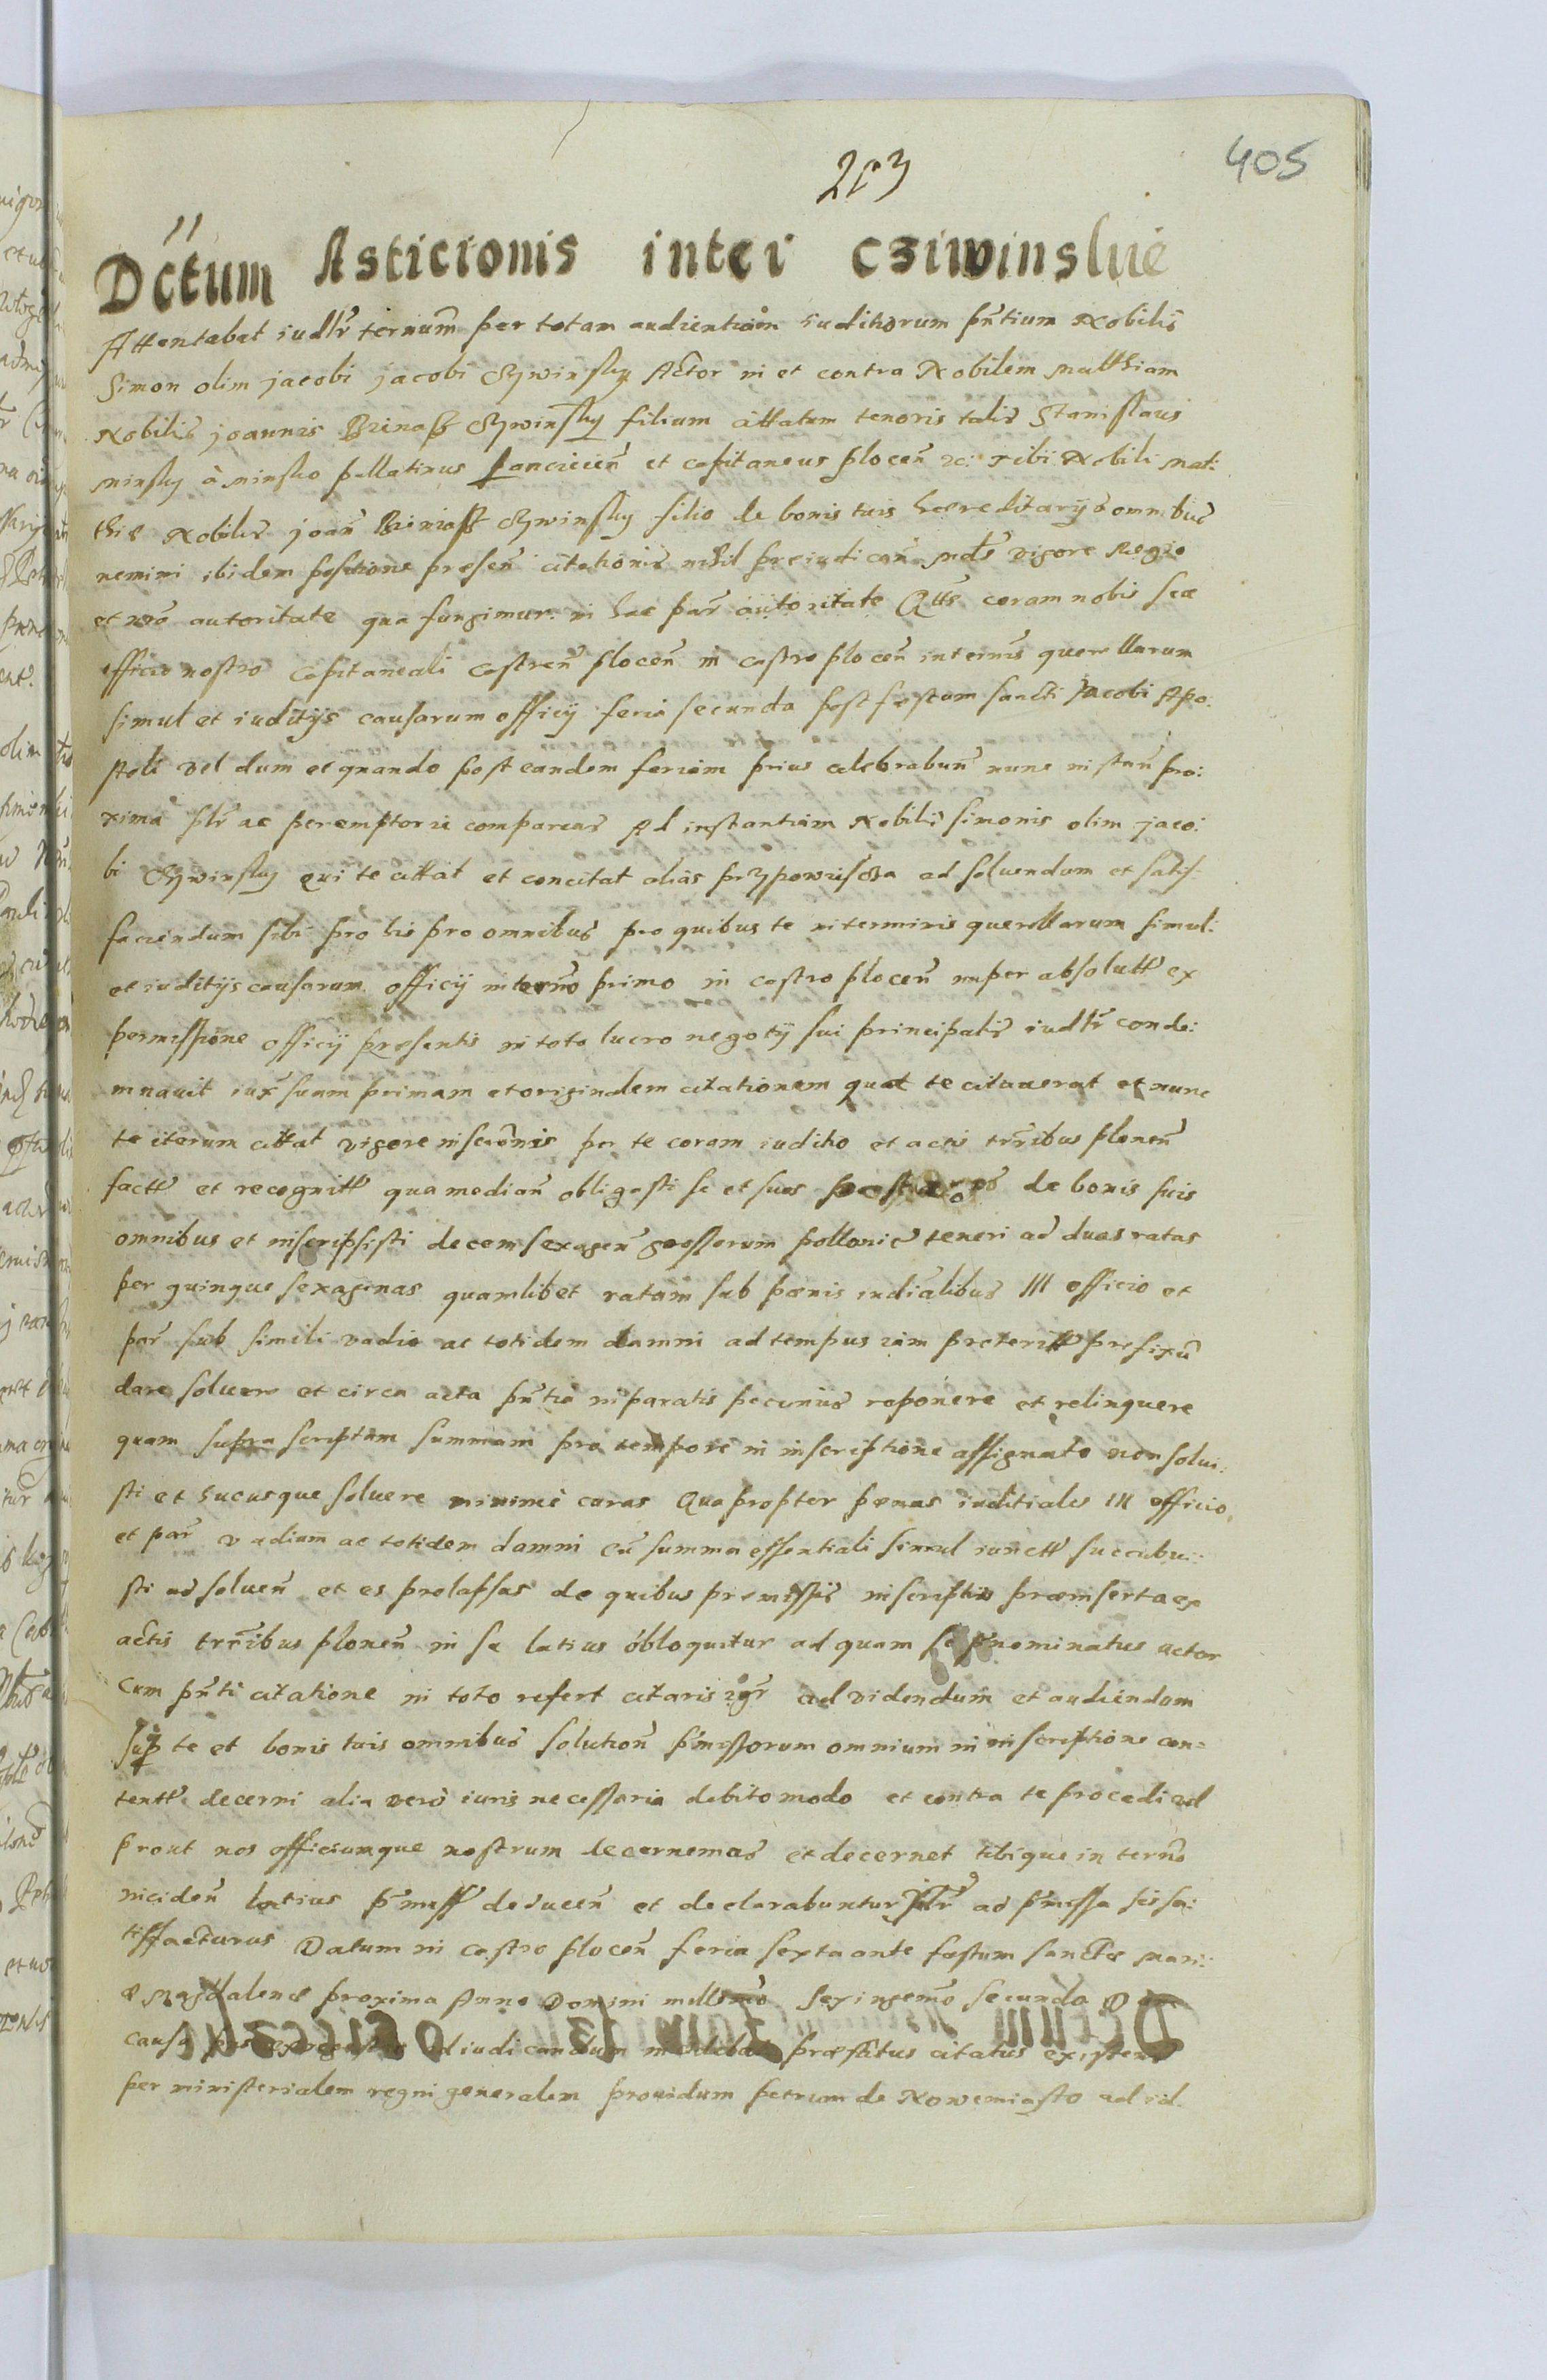 203
405
Dctum Asticionis inter Cziwinskie
Attentabat iudlr ternum per totam audientiam iuditiorum pntium Nobilis
Simon olim jacobi jacobi Czywinsky Actor in et contra Nobilem Matthiam
Nobilis joannis Brinass Czywinsky filium citatum tenoris talis Stanislaus
Minsky à Minsko pallatinus Lancicien et Capitaneus plocen Tibi Nobili Mat:
thie Nobilis joan Briniass Czywinsky filio de bonis tuis haereditarijs omnibus
nemini ibidem positione presen citationis nihil preiudican Mds vigore Regie
et autoritate qua fungimur in hac par autoritate Qtts coram nobis seu
officio nostro Capitaneali Castren plocen in castro plocen in ternis querellarum
simul et iuditijs causarum officij feria secunda post festum sancti Jacobi Apo:
stoli vel dum et quando post eandem feriam prius celebrabun nunc instan pro:
xima plr ac peremptorie compareas Ad instantiam Nobilis Simonis olim jaco:
bi Czywinsky qui te cittat et concitat alias przypowiescza ad soluendum et satis:
faciendum sibi pro his pro omnibus pro quibus te in terminis querellarum simul:
et iuditijs causarum officij in terno primo in castro plocen nuper absolutt ex
permissione officij presentis in toto lucro negotij sui principalis iudlr conde:
mnauit iux suam primam et originalem citationem quat te citauerat et nunc
te iterum cittat vigore inscronis per te coram iuditio et actis trribus plonen
factt et recognitt qua median obligasti se et suos de bonis suis
omnibus et inscripsisti decem sexagen grossorum pollonic teneri ad duas ratas
per quinque sexagenas quamlibet ratam sub poenis iudialibus III officio et
par sub simili vadio ac totidem damni ad tempus iam preteritt prefixu
dare soluere et circa acta pntia in paratis pecunius reponere et relinquere
quam supra scriptam summam pro tempore in inscriptione assignato non solui:
sti et hucusque soluere minime curas Qua propter poenas iuditiales III officio
et par vadium ac totidem damni cu summa essentiali simul iunctt succubui:
sti ad soluen et es prolapsus de quibus premissis inscriptio preinserta ex
actis trribus plonen in se latius obloquitur ad quam se pnominatus actor
Cum pnti citatione in toto refert citaris igr ad videndum et audiendum
sup te et bonis tuis omnibus solution pmissorum omnium in inscriptione con=
tentt decerni alia vero iuris necessaria debito modo et contra te procedi vel
prout nos officiumque nostrum decernemus et decernet tibi que in terno
inciden latius pmiss deducen et declarabuntur plr ad pmissa sis sa:
tiffacturus Datum in castro plocen feria sexta ante festum sanctae Mari:
e Magdalene proxima Anno Domini millmo sexingemo secundo
causa ad iudicandum prefatus citatus existens
per ministerialem regni generalem prouidum petrum de Nowemiasto ad id